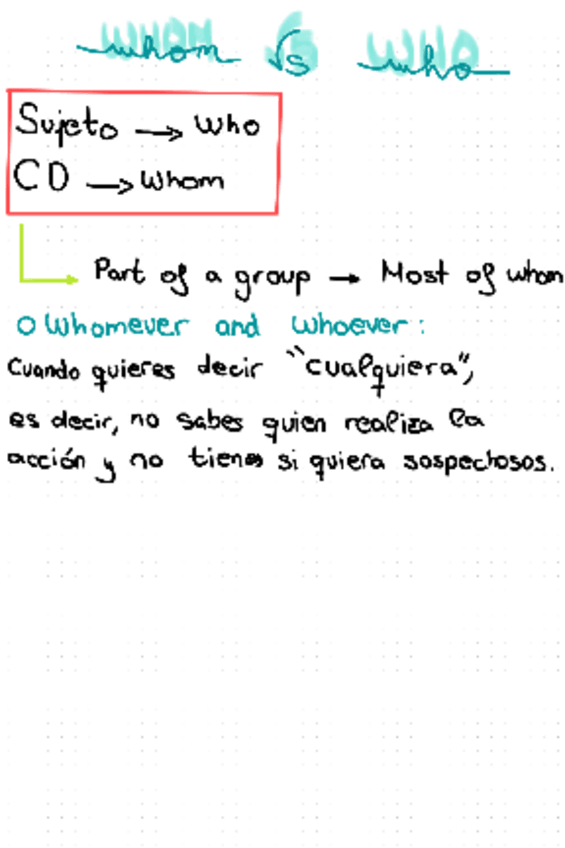 whom Vs who
Sujeto → Who
CD → Whom
Part of a group → Most of whom
O Whomever and Whoever:
Cuando quieres decir "cualquiera",
es decir, no sabes quien realiza la
acción y no tienes si quiera sospechosos.